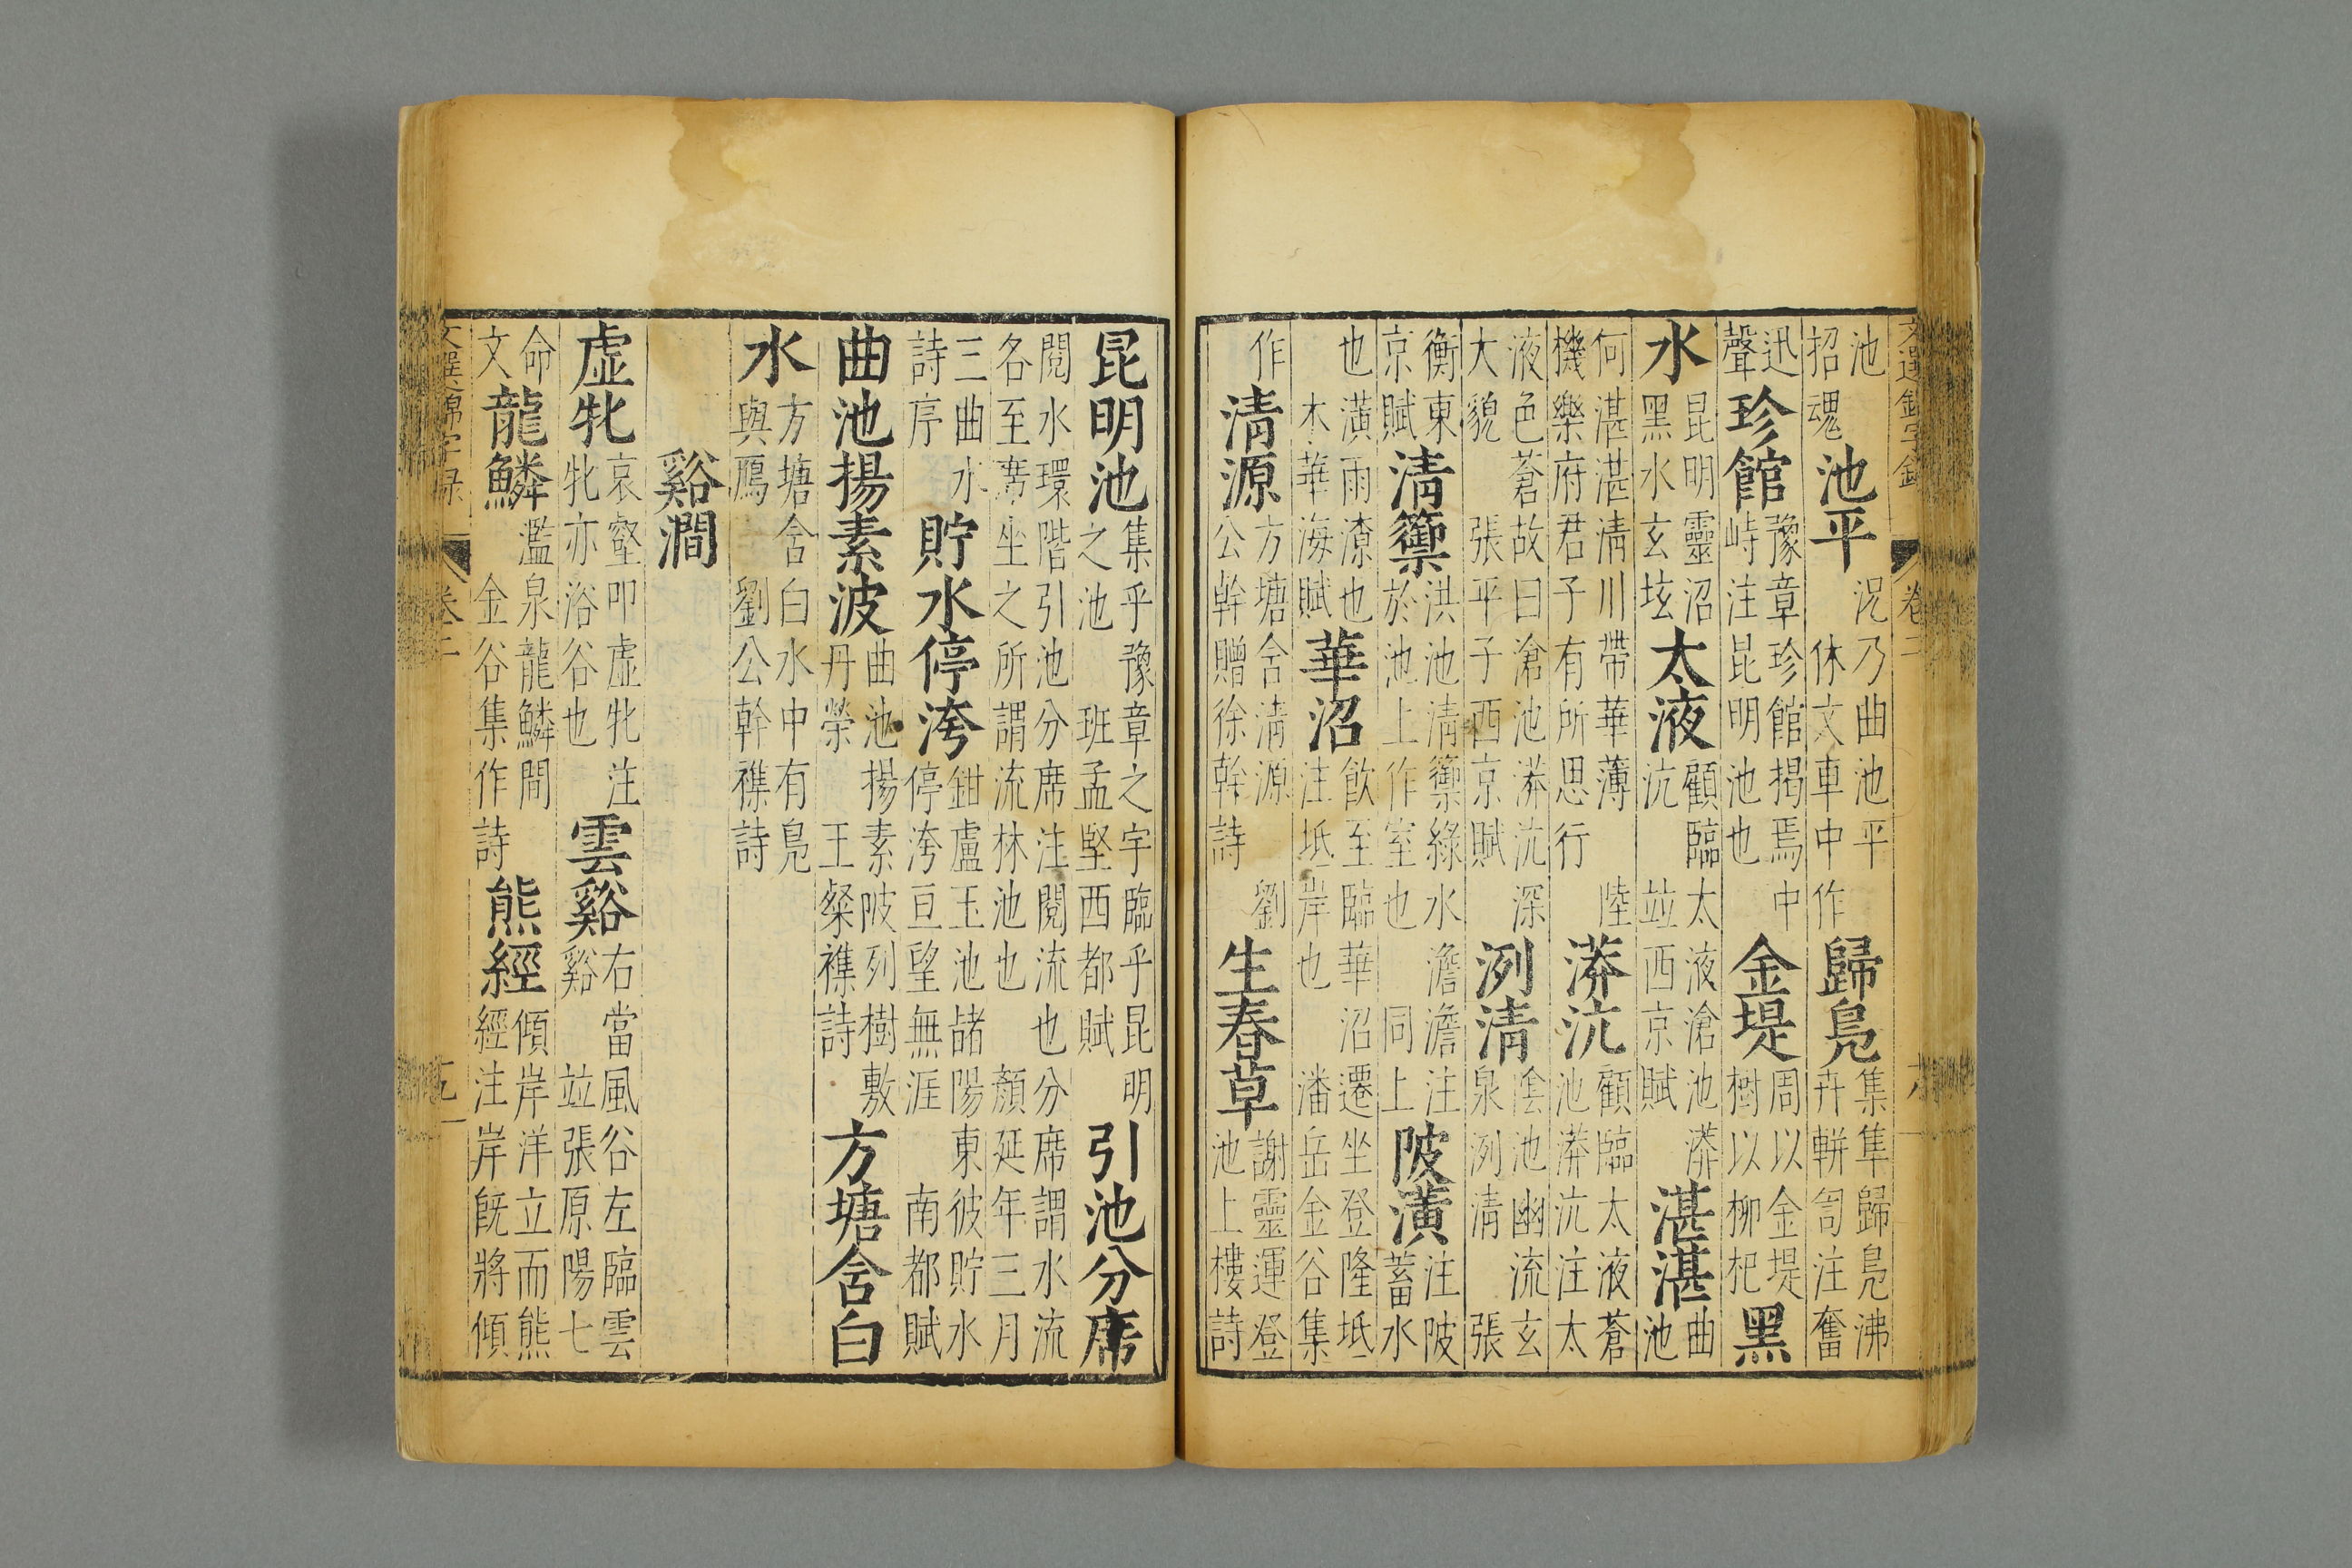 文選錦字錄 卷二 六
池招魂池平況乃曲池平休文車中作歸鳧集隼歸鳧沸卉軿訇注奮
迅聲珍館豫章珍館揭焉中峙注昆明池也金堤周以金堤樹以柳杞黑
水昆明靈沼黑水玄址太液顧臨太液滄池漭沆並西京賦湛湛曲池
何湛湛清川帶華薄陸機樂府君子有所思行漭沆顧臨太液蒼池漭沆注太
液色蒼故曰滄池漭沆深大貌張平子西京賦洌清陰池幽流玄泉洌清張
衡東京賦清籞洪池清籞綠水澹澹注於池上作室也同上陂潢注陂蓄水
也潢雨潦也木華海賦華沼飲至臨華沼遷坐登隆坻注坻岸也潘岳金谷集
作清源方塘含清源劉公幹贈徐幹詩生春草謝靈運登池上樓詩
昆明池集乎豫章之宇臨乎昆明之池班孟堅西都賦引池分席
閱水環階引池分席注閱流也分席謂水流各至席坐之所謂流林池也顏延年三月
三曲水詩序貯水停洿鉗盧玉池諸陽東彼貯水停洿亘望無涯南都賦
曲池揚素波曲池揚素陂列樹敷丹榮王粲襍詩方塘含白
水方塘含白水中有鳧與鴈劉公幹襍詩
谿澗
虛牝哀壑叩虛牝注牝亦浴谷也雲谿右當風谷左臨雲谿並張原陽七
命文龍鱗濫泉龍鱗間金谷集作詩熊經傾岸洋立而熊經注岸旣將傾
文選錦字錄 卷二